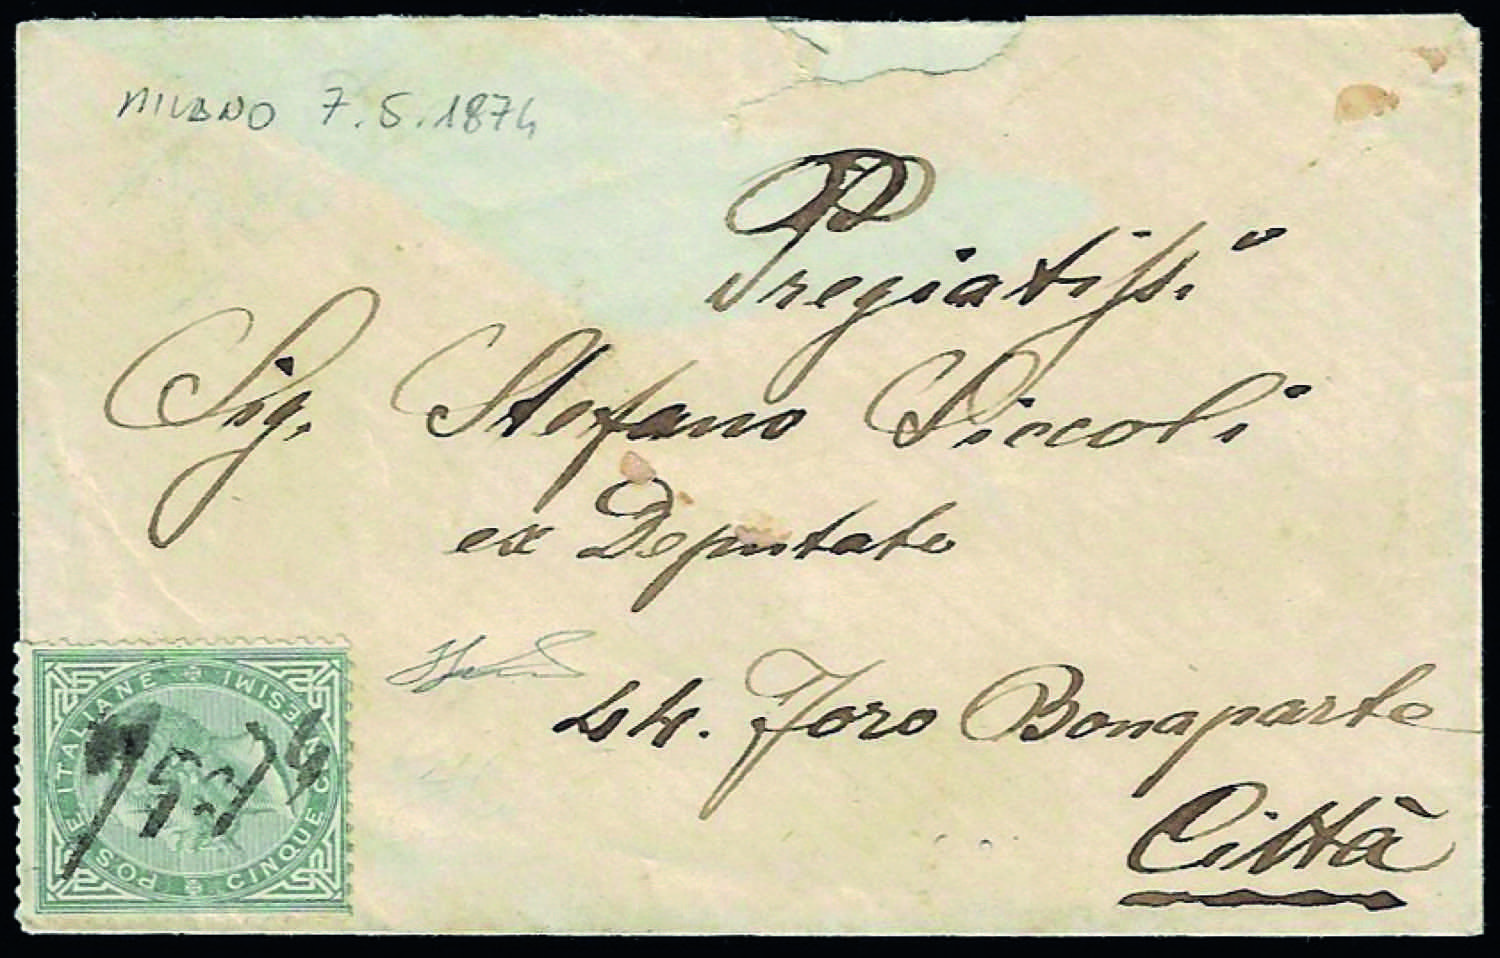 MILANO 7.5.1874
Pregiatiss.
Sig. Stefano Piccoli
ex Deputato
44. Foro Bonaparte
Città
POSTE ITALIANE
CINQUE CENTESIMI
7 5 74